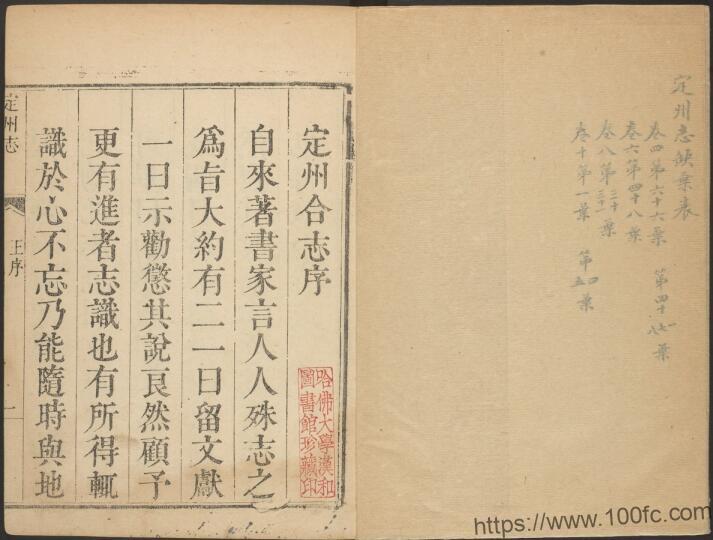 定州志缺葉表
卷四第六十六葉 第四十七八葉
卷六第四十八葉
卷八第三十三十一葉
卷十第一葉 第四五葉
定州合志序
自來著書家言人人殊志之
爲旨大約有二一曰留文獻
一曰示勸懲其說良然顧予
更有進者志識也有所得輒
識於心不忘乃能隨時與地
哈佛大學漢和
圖書館珍藏印
定州志
王序
一
https://www.100fc.com